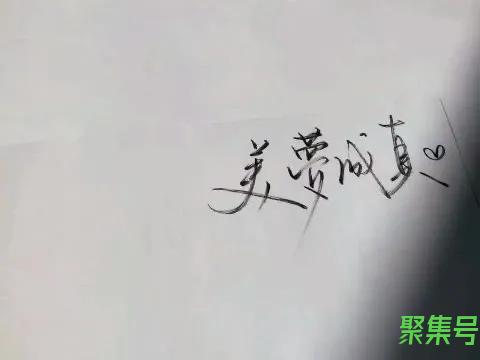 美梦成真♡
聚集号